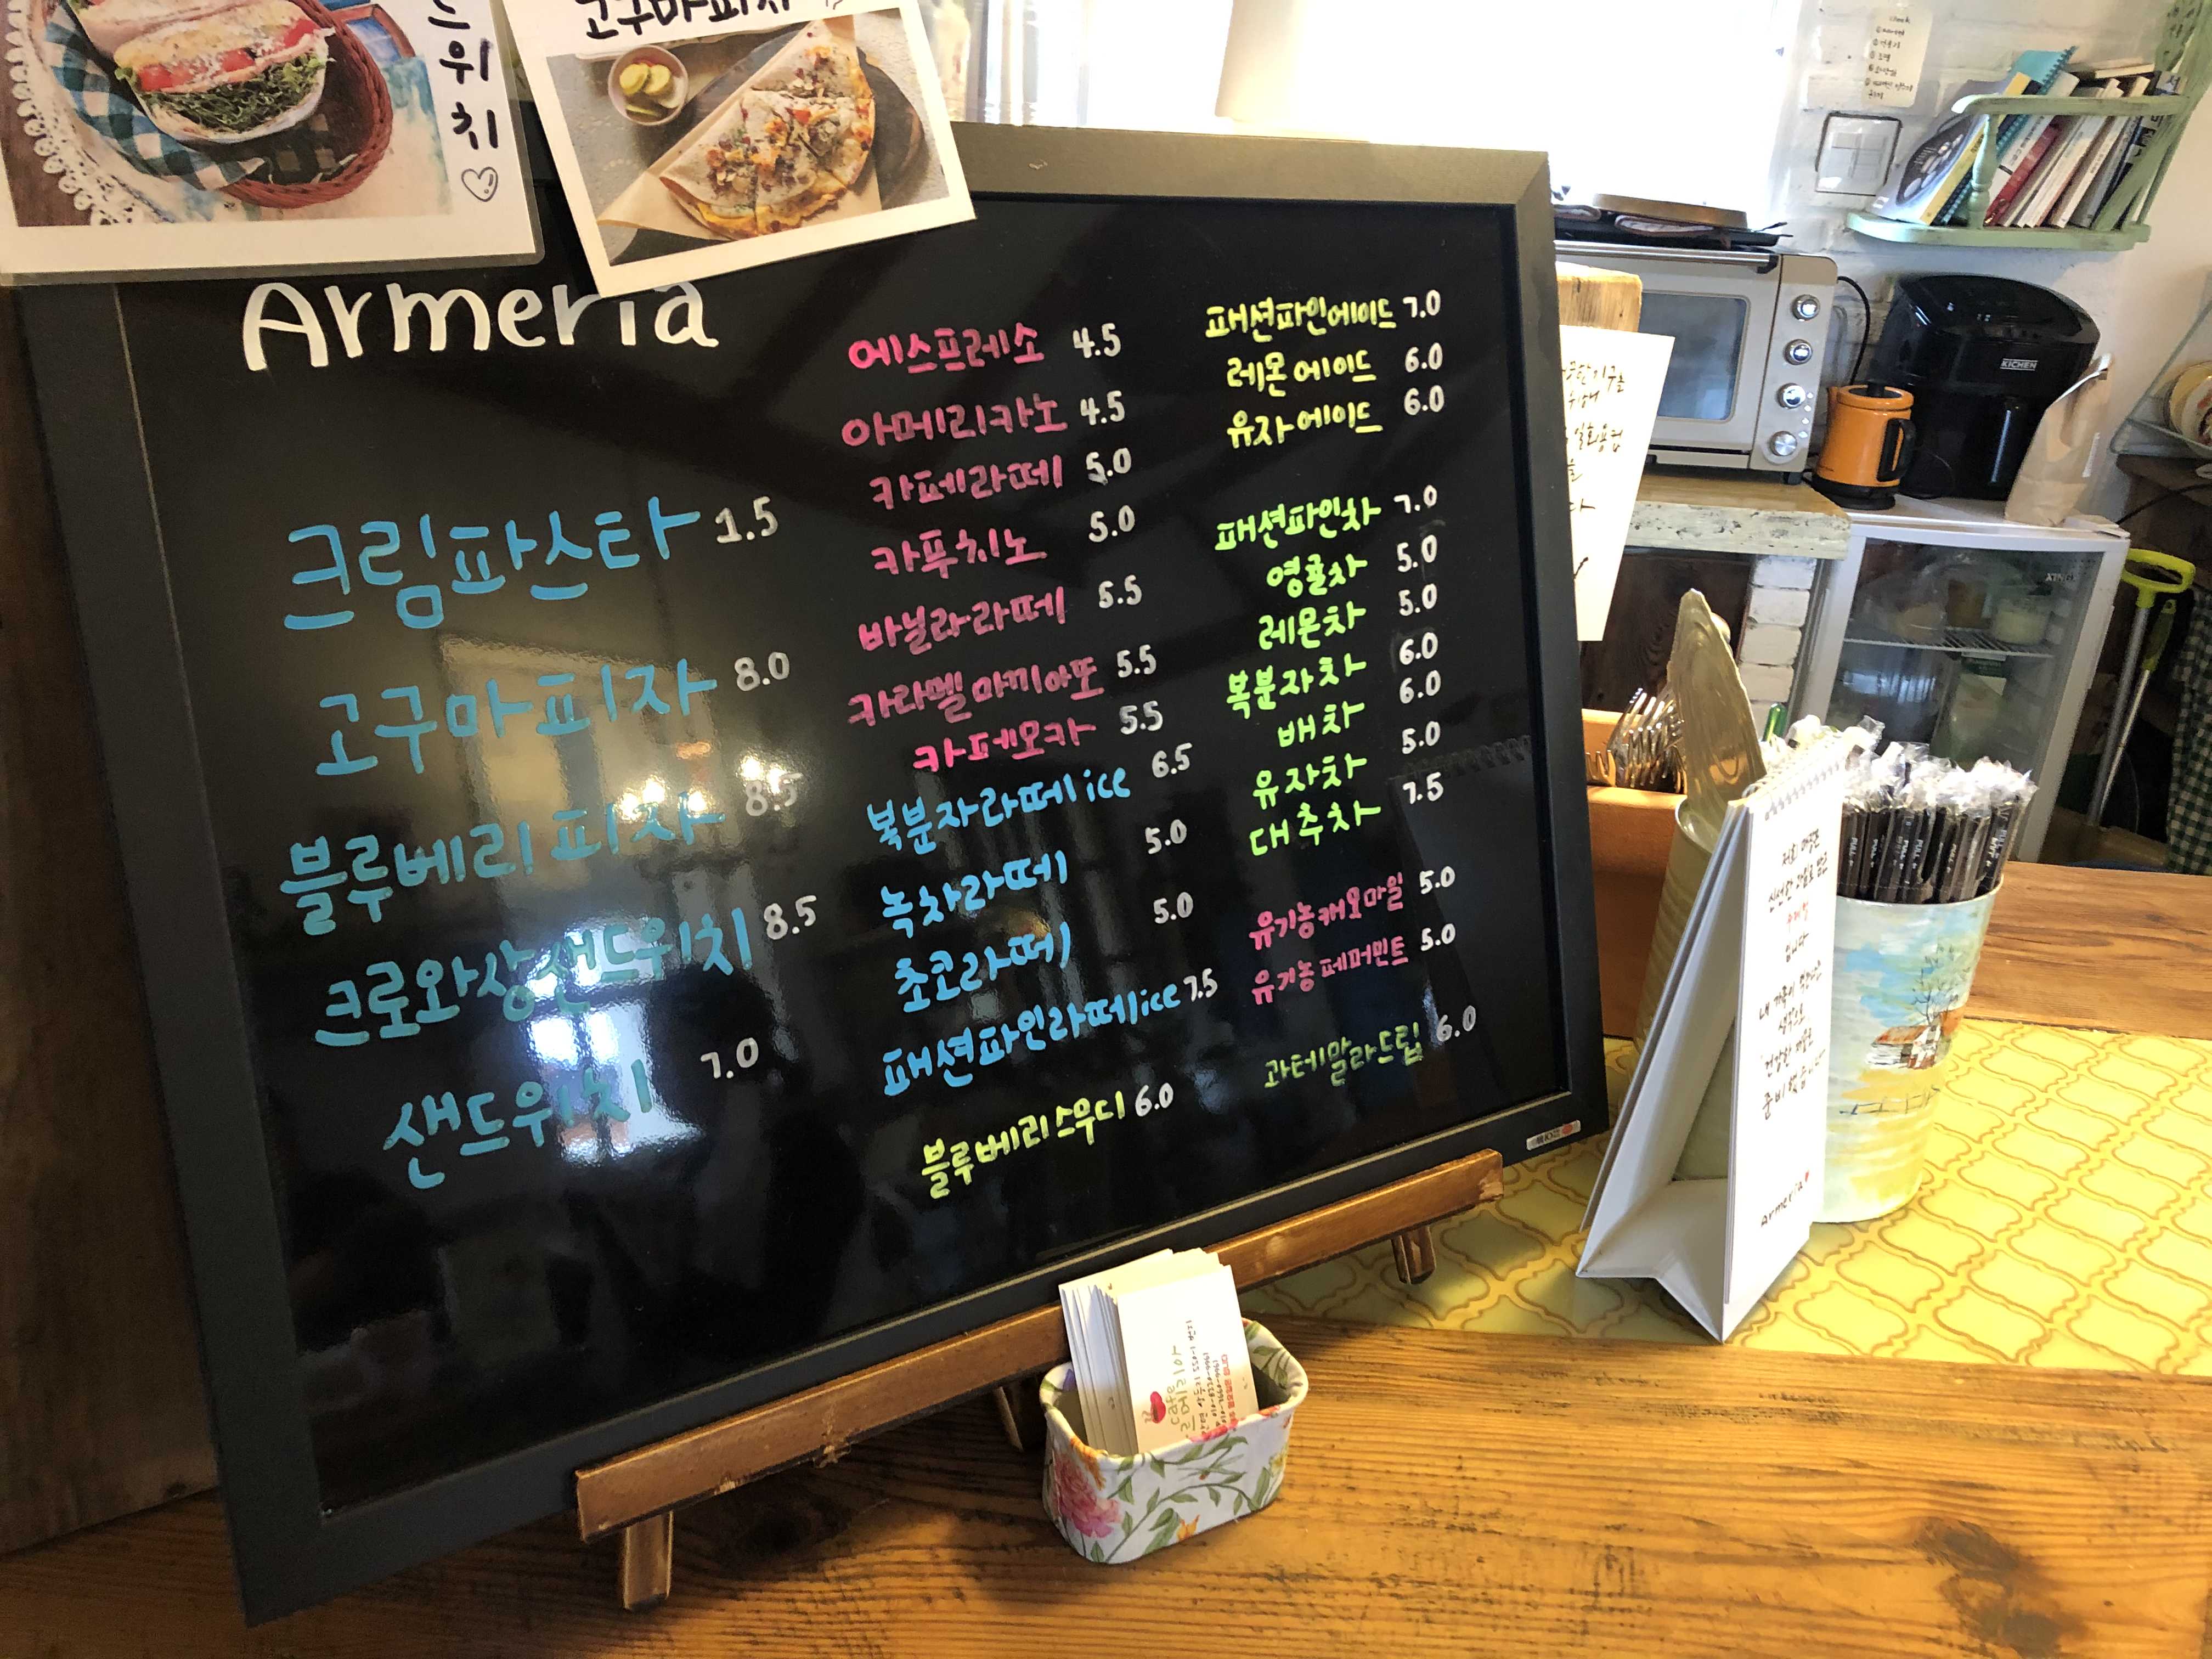 드위치♡
고구마피자
Armeria
크림파스타 1.5
고구마피자 8.0
블루베리피자 8.5
크로와상샌드위치 8.5
샌드위치 7.0
에스프레소 4.5
아메리카노 4.5
카페라떼 5.0
카푸치노 5.0
바닐라라떼 5.5
카라멜마끼아또 5.5
카페모카 5.5
복분자라떼ice 6.5
녹차라떼 5.0
초코라떼 5.0
패션파인라떼ice 7.5
블루베리스무디 6.0
패션파인에이드 7.0
레몬에이드 6.0
유자에이드 6.0
패션파인차 7.0
영귤차 5.0
레몬차 5.0
복분자차 6.0
배차 6.0
유자차 5.0
대추차 7.5
유기농캐모마일 5.0
유기농페퍼민트 5.0
과테말라드립 6.0
KICHEN
cafe
저희 매장은
신선한 재료로 만든
수제청
입니다
내 가족이 먹는다는
생각으로
건강한 재료로
준비했습니다
Armeria